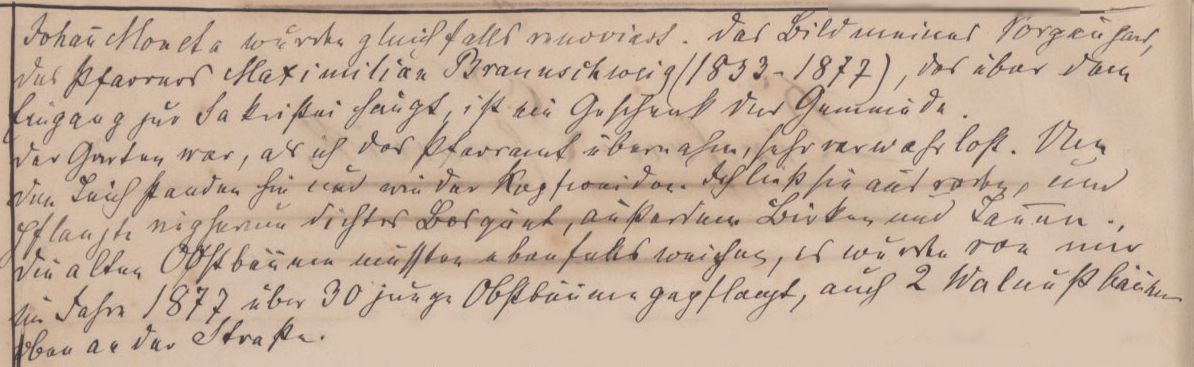 Johañ Moneta wurden gleichfalls renoviert. Das Bild meines Vorgängers,
des Pfarrers Maximilian Braunschweig (1833-1877), das über dem
Eingang zur Sakristei hängt, ist ein Geschenk der Gemeinde.
Der Garten war, als ich das Pfarramt übernahm, sehr verwahrlost. Um
den Teich standen hin und wieder Kopfweiden. Ich ließ sie ausroden, und
pflanzte ringsherum dichtes Bosquet, außerdem Birken und Tannen.,
Die alten Obstbäume mussten ebenfalls weichen, es wurden von mir
im Jahre 1877 über 30 junge Obstbäume gepflanzt, auch 2 Walnußbäume
oben an der Straße.